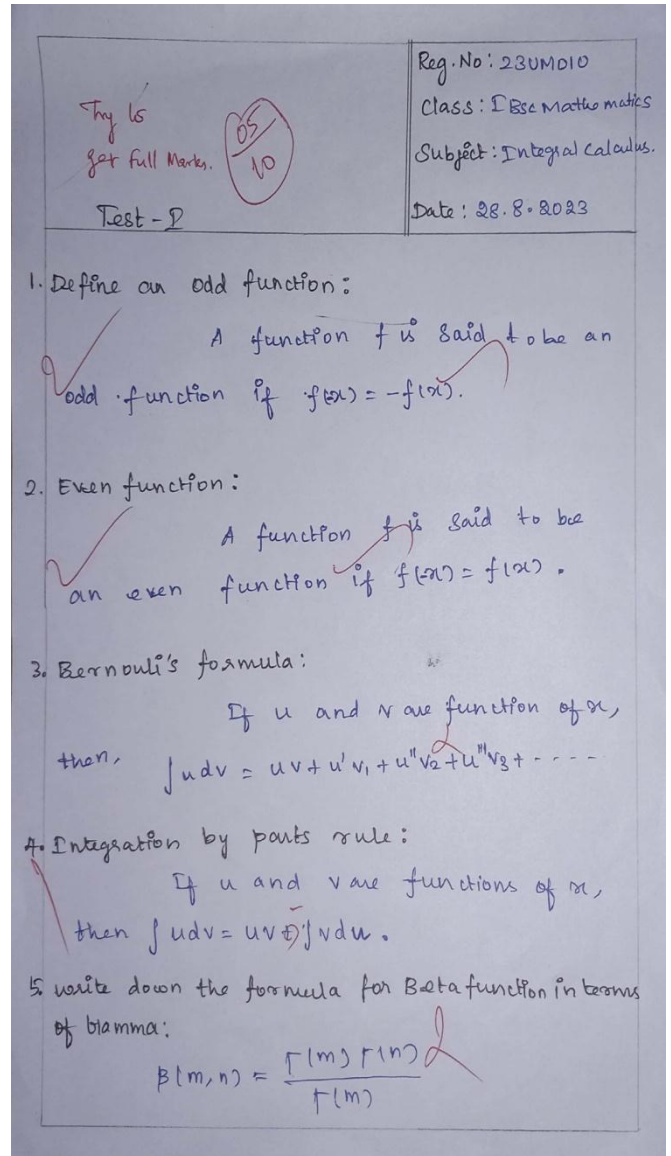 Reg.No: 23UM010
Class: I Bsc Mathematics
Subject: Integral Calculus.
Date: 28.8.2023
Try to
get full Marks.
05/10
Test - I
1. Define an odd function:
A function f is said to be an
odd function if f(-x) = -f(x).
2. Even function:
A function f is said to be
an even function if f(-x) = f(x).
3. Bernouli's formula:
If u and v are function of x,
then, ∫udv = uv + u'v₁ + u''v₂ + u'''v₃ + - - - -
4. Integration by parts rule:
If u and v are functions of x,
then ∫udv = uv + ∫vdu.
-
5. write down the formula for Beta function in terms
of Gamma:
β(m,n) = Γ(m) Γ(n)
Γ(m)